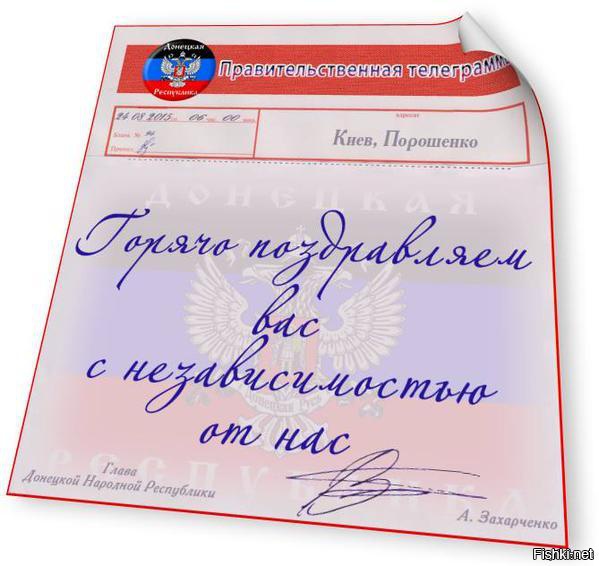 Донецкая
Республика
Правительственная телеграмма
24 08 2015 г. 06 час. 00 мин.
адресат
Бланк №
Принял
Киев, Порошенко
ДОНЕЦКАЯ
Горячо поздравляем
вас
с независимостью
от нас
Донецкая Русь
РЕСПУБЛИКА
Глава
Донецкой Народной Республики
А. Захарченко
Fishki.net